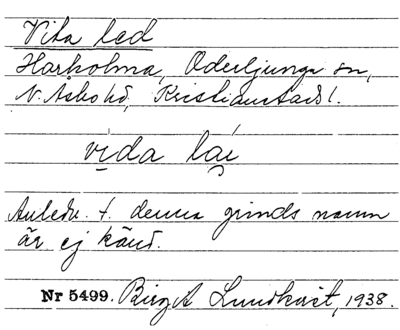 Vita led
Harholma, Oderljunga sn,
N. Åsbo hd, Kristianstads l.
vida lai
Anledn. t. denna grinds namn
är ej känd.
Nr 5499. Birgit Lundkvist, 1938.